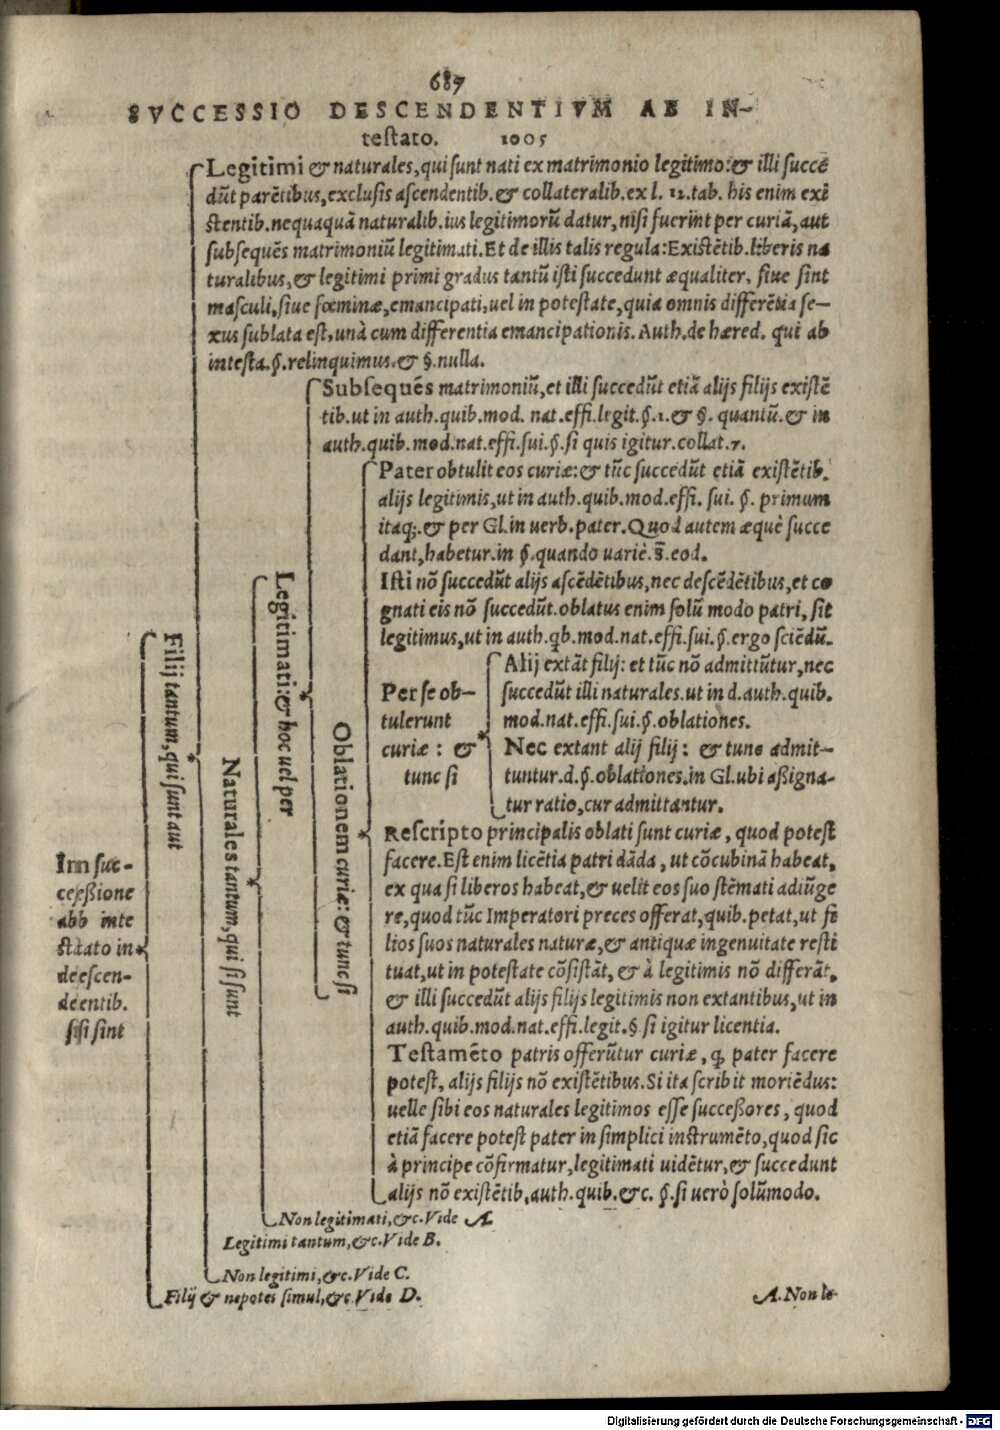 687
SVCCESSIO DESCENDENTIVM AB IN-
testato. 1005
Legitimi & naturales, qui sunt nati ex matrimonio legitimo: & illi succē
dūt parētibus, exclusis ascendentib. & collateralib. ex l. 12. tab. his enim exi
stentib. nequaquā naturalib. ius legitimorū datur, nisi fuerint per curiā, aut
subsequēs matrimoniū legitimati. Et de illis talis regula: Existētib. liberis na
turalibus, & legitimi primi gradus tantū isti succedunt æqualiter, siue sint
masculi, siue fœminæ, emancipati, uel in potestate, quia omnis differētia se-
xus sublata est, unà cum differentia emancipationis. Auth. de hæred. qui ab
intesta. §. relinquimus. & §. nulla.
Subsequēs matrimoniū, et illi succedūt etiā alijs filijs existē
tib. ut in auth. quib. mod. nat. effi. legit. §. 1. & §. quantū. & in
auth. quib. mod. nat. effi. sui. §. si quis igitur. collat. 7.
Pater obtulit eos curiæ: & tūc succedūt etiā existētib.
alijs legitimis, ut in auth. quib. mod. effi. sui. §. primum
itaq;. & per Gl. in uerb. pater. Quod autem æquè succe
dant, habetur. in §. quando uariè. s̄. eod.
Isti nō succedūt alijs ascēdētibus, nec descēdētibus, et co
gnati eis nō succedūt. oblatus enim solū modo patri, sit
legitimus, ut in auth. qb. mod. nat. effi. sui. §. ergo sciēdū.
Per se ob-
tulerunt
curiæ: &
tunc si
Alij extāt filij: et tūc nō admittūtur, nec
succedūt illi naturales. ut in d. auth. quib.
mod. nat. effi. sui. §. oblationes.
Nec extant alij filij: & tunc admit-
tuntur. d. §. oblationes. in Gl. ubi aßigna-
tur ratio, cur admittantur.
Rescripto principalis oblati sunt curiæ, quod potest
facere. Est enim licētia patri dāda, ut cōcubinā habeat,
ex qua si liberos habeat, & uelit eos suo stēmati adiūge
re, quod tūc Imperatori preces offerat, quib. petat, ut fi
lios suos naturales naturæ, & antiquæ ingenuitate resti
tuat, ut in potestate cōsistāt, & à legitimis nō differāt,
& illi succedūt alijs filijs legitimis non extantibus, ut in
auth. quib. mod. nat. effi. legit. §. si igitur licentia.
Testamēto patris offerūtur curiæ, q; pater facere
potest, alijs filijs nō existētibus. Si ita scribit moriēdus:
uelle sibi eos naturales legitimos esse succeßores, quod
etiā facere potest pater in simplici instrumēto, quod sic
à principe cōfirmatur, legitimati uidētur, & succedunt
alijs nō existētib, auth. quib. &c. §. si uerò solūmodo.
Oblationem curiæ: & tunc si
Legitimati: & hoc uel per
Naturales tantum, qui si sunt
Filij tantum, qui sunt aut
Inn suc-
ceßione
abb inte
stato in
deescen-
deentib.
sisi sint
Non legitimati, &c. Vide A.
Legitimi tantum, &c. Vide B.
Non legitimi, &c. Vide C.
Filij & nepotes simul, &c. Vide D.
A. Non le-
Digitalisierung gefördert durch die Deutsche Forschungsgemeinschaft - DFG